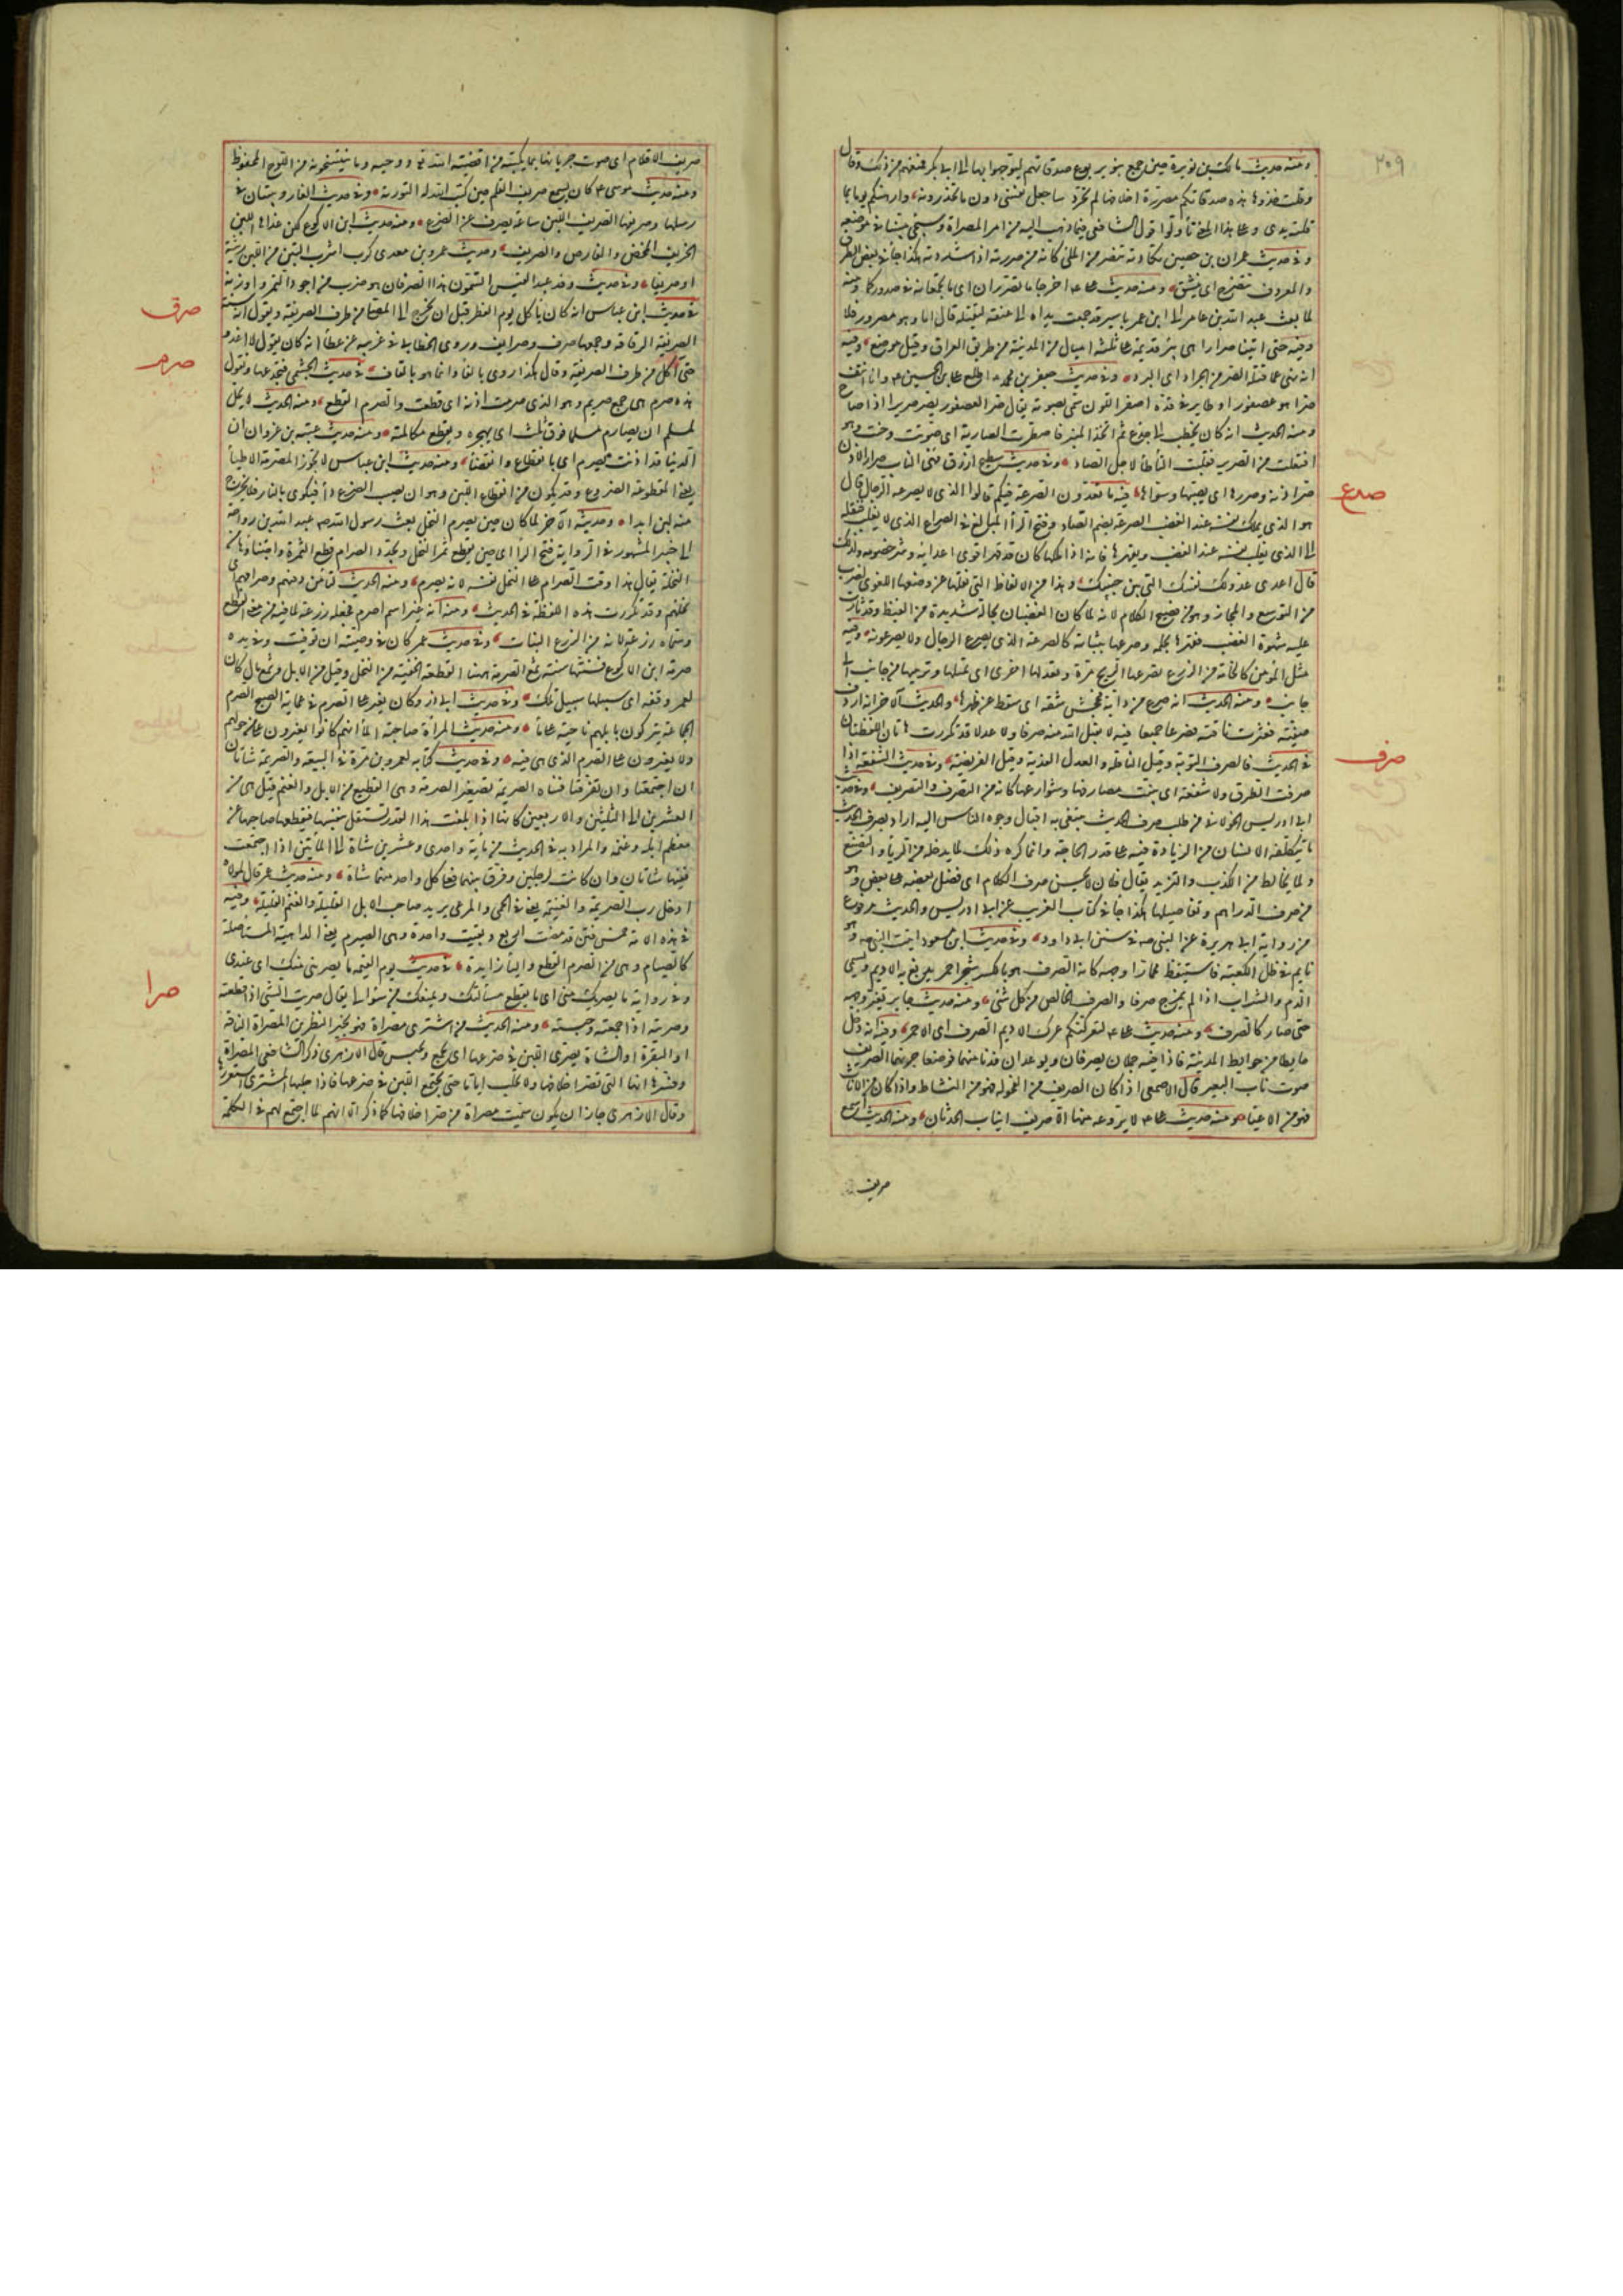 ٢٠٩
ومنه حديث مالك بن نويرة حين جمع بنو يربوع صدقاتهم ليوجهوا بها الى ابى بكر فمنعهم من ذلك وقال
وقلت خذوها هذه صدقاتكم مصررة اخلافها لم تجرد ساجعل نفسى دون ما تحذرونه وارهنكم يوما بما
قلته يدى وعلى هذا المعنى تأولوا قول الشافعى فيما ذهب اليه من امر المصراة وسيجى مبينا فى موضعه
وفى حديث عمران بن حصين تكاد تنصر من الملئ كانه من صررته اذا شددته هكذا جاء فى بعض الطرق
والمعروف تنضرج اى تنشق ومنه حديث على اخرجا ما تصررانه اى ما تجمعانه فى صدوركما ومنه
لما بعث عبد الله بن عامر الى ابن عمر باسير قد جمعت يداه الى عنقه ليقتله قال اما وهو مصرور فلا
وفيه حتى اتينا صرارا هى بئر قديمة على ثلثة اميال من المدينة من طريق العراق وقيل موضع وفيه
انه نهى عما قتله الصر من الجراد اى البرد وفى حديث جعفر بن محمد اطلع على بن الحسين وانا انتف
صرا هو عصفور او طاير فى قده اصفر اللون سمى بصوته يقال صر العصفور يصر صريرا اذا صاح
ومنه الحديث انه كان يخطب الى جذع ثم اتخذ المنبر فاصطرت السارية اى صوتت وحنت وهو
افتعلت من الصرير فقلبت التاء طاء لاجل الصاد وفى حديث سطيح ازرق مهمى الناب صرار الاذن
صر اذنه وصررها اى نصبها وسواها فيه ما تعدون الصرعة فيكم قالوا الذى لا يصرعه الرجال قال
صرع
هو الذى يملك نفسه عند الغضب الصرعة بضم الصاد وفتح الراء المبالغ فى الصراع الذى لا يغلب فنقله
الى الذى يغلب نفسه عند الغضب ويقهرها فانه اذا ملكها كان قد قهر اقوى اعدائه وشر خصومه ولذلك
قال اعدى عدو لك نفسك التى بين جنبيك وهذا من الالفاظ التى نقلها عن وضعها اللغوى لضرب
من التوسع والمجاز وهو من فصيح الكلام لانه لما كان الغضبان بحالة شديدة من الغيظ وقد ثارت
عليه شهوة الغضب فقهرها بحلمه وصرعها بثباته كالصرعة الذى يصرع الرجال ولا يصرعونه وفيه
مثل المؤمن كالخامة من الزرع تصرعها الريح مرة وتعدلها اخرى اى تميلها وترميها من جانب الى
جانب ومنه الحديث انه صرع من دابة فجحش شقه اى سقط عن ظهرها والحديث الاخر انه اردف
صفية فعثرت ناقته فصرعا جميعا فيه لا يقبل الله منه صرفا ولا عدلا قد تكررت هاتان اللفظتان
صرف
فى الحديث فالصرف التوبة وقيل النافلة والعدل الفدية وقيل الفريضة وفى حديث الشفعة اذا
صرفت الطرق ولا شفعة اى بينت مصارفها وشوارعها كانه من التصرف والتصريف وفى حديث
ابى ادريس الخولانى من طلب صرف الحديث يبتغى به اقبال وجوه الناس اليه اراد بصرف الحديث
ما يتكلفه الانسان من الزيادة فيه على قدر الحاجة وانما كره ذلك لما يدخله من الرياء والتصنع
ولما يخالط من الكذب والتزيد يقال فلان لا يحسن صرف الكلام اى فضل بعضه على بعض وهو
من صرف الدراهم وتفاضلها هكذا جاء فى كتاب الغريب عن ابى ادريس والحديث مرفوع
من رواية ابى هريرة عن النبى فى سنن ابى داود وفى حديث ابن مسعود اتيت النبى وهو
نايم فى ظل الكعبة فاستيقظ محمارا وجهه كانه الصرف هو بالكسر شجر احمر يدبغ به الاديم ويسمى
الدم والشراب اذا لم يمزج صرفا والصرف الخالص من كل شئ ومنه حديث جابر تغير وجهه
حتى صار كالصرف ومنه حديث على لتعركنكم عرك الاديم الصرف اى الاحمر وفيه انه دخل
حايطا من حوايط المدينة فاذا فيه جملان يصرفان ويوعدان فدنا منهما فوضعا جرنهما الصريف
صوت ناب البعير قال الاصمعى اذا كان الصريف من الفحولة فهو من النشاط واذا كان من الاناث
فهو من الاعياء ومنه حديث على لا يروعه منها الا صريف انياب الحدثان ومنه الحديث اسمع
صريف
صريف الاقلام اى صوت جريانها بما يكتبه من اقضية الله ووحيه وما ينتسخونه من اللوح المحفوظ
ومنه حديث موسى كان يسمع صريف القلم حين كتب الله له التورية وفى حديث الغار ويبيتان فى
رسلها وصريفها الصريف اللبن ساعة يصرف عن الضرع ومنه حديث ابن الاكوع لكن غذاها اللبن
الخريف المخض والقارص والصريف وحديث عمرو بن معدى كرب اشرب التبن من اللبن رثيئة
او صريفا وفى حديث وفد عبد القيس اتسمون هذا الصرفان هو ضرب من اجود التمر واوزنه
صرق
فى حديث ابن عباس انه كان ياكل يوم الفطر قبل ان يخرج الى المصلى من طرف الصريقة ويقول انه سنة
الصريقة الرقاقة وجمعها صرق وصرايق وروى الخطابى فى غريبه عن عطا انه كان يقول لا اغدو
صرم
حتى آكل من طرف الصريفة وقال هكذا روى بالفاء وانما هو بالقاف فى حديث الجشمى فتجدعها وتقول
هذه صرم هى جمع صريم وهو الذى صرمت اذنه اى قطعت والصرم القطع ومنه الحديث لا يحل
لمسلم ان يصارم مسلما فوق ثلث اى يهجره ويقطع مكالمته ومنه حديث عتبة بن غزوان ان
الدنيا قد اذنت بصرم اى بانقطاع وانقضاء ومنه حديث ابن عباس لا يجوز المصرمة الاطباء
يعنى المقطوعة الضروع وقد يكون من انقطاع اللبن وهو ان يصيب الضرع داء فيكوى بالنار فلا يخرج
منه لبن ابدا وحديثه الآخر لما كان حين يصرم النخل بعث رسول الله عبد الله بن رواحة
الى خيبر المشهور فى الرواية فتح الراء اى حين يقطع ثمر النخل ويجد والصرام قطع الثمرة واجتناؤها من
النخلة يقال هذا وقت الصرام على النخل نفسه لانه يصرم ومنه الحديث لنا من دفئهم وصرامهم اى
نخلهم وقد تكررت هذه اللفظة فى الحديث ومنه انه غير اسم اصرم فجعله زرعة لما فيه من معنى القطع
وسماه زرعة لانه من الزرع النبات وفى حديث عمر كان فى وصيته ان توفيت وفى يده
صرمة ابن الاكوع فسنتها سنة ثمغ الصرمة ههنا القطعة الخفيفة من النخل وقيل من الابل وثمغ مال كان
لعمر وقفه اى سبيلها سبيل تلك وفى حديث ابى ذر وكان يغير على الصرم فى عماية الصبح الصرم
الجماعة يتركون بابلهم ناحية على ماء ومنه حديث المرأة صاحبة الماء انهم كانوا يغيرون على من حولهم
ولا يغيرون على الصرم الذى هى فيه وفى حديث كتابه لعمرو بن مرة فى التيعة والصريمة شاتان
ان اجتمعتا وان تفرقتا فشاة الصريمة تصغير الصرمة وهى القطيع من الابل والغنم قيل هى من
العشرين الى الثلثين والاربعين كانها اذا بلغت هذا القدر تستقل بنفسها فيقطعها صاحبها عن
معظم ابله وغنمه والمراد به فى الحديث من مائة واحدى وعشرين شاة الى المأتين اذا اجتمعت
ففيها شاتان وان كانت لرجلين وفرق بينهما فعلى كل واحد منهما شاة ومنه حديث عمر قال لمولاه
ادخل رب الصريمة والغنيمة يعنى فى الحمى والمرعى يريد صاحب الابل القليلة والغنم القليلة وفيه
فى هذه الامة خمس فتن قد مضت اربع وبقيت واحدة وهى الصيرم يعنى الداهية المستاصلة
كالصيلم وهى من الصرم القطع والياء زايدة فى حديث يوم القيمة ما يصرينى منك اى عبدى
صرا
وفى رواية ما يصريك منى اى ما يقطع مسألتك ويمنعك من سؤالى يقال صريت الشئ اذا قطعته
وصريته اذا جمعته وحبسته ومنه الحديث من اشترى مصراة فهو بخير النظرين المصراة الناقة
او البقرة او الشاة يصرى اللبن فى ضرعها اى يجمع ويحبس قال الازهرى ذكر الشافعى المصراة
وفسرها انها التى تصر اخلافها ولا تحلب اياما حتى يجتمع اللبن فى ضرعها فاذا حلبها المشترى استغزرها
وقال الازهرى جاز ان يكون سميت مصراة من صر اخلافها كما ذكر الا انهم لما اجتمع لهم فى الكلمة